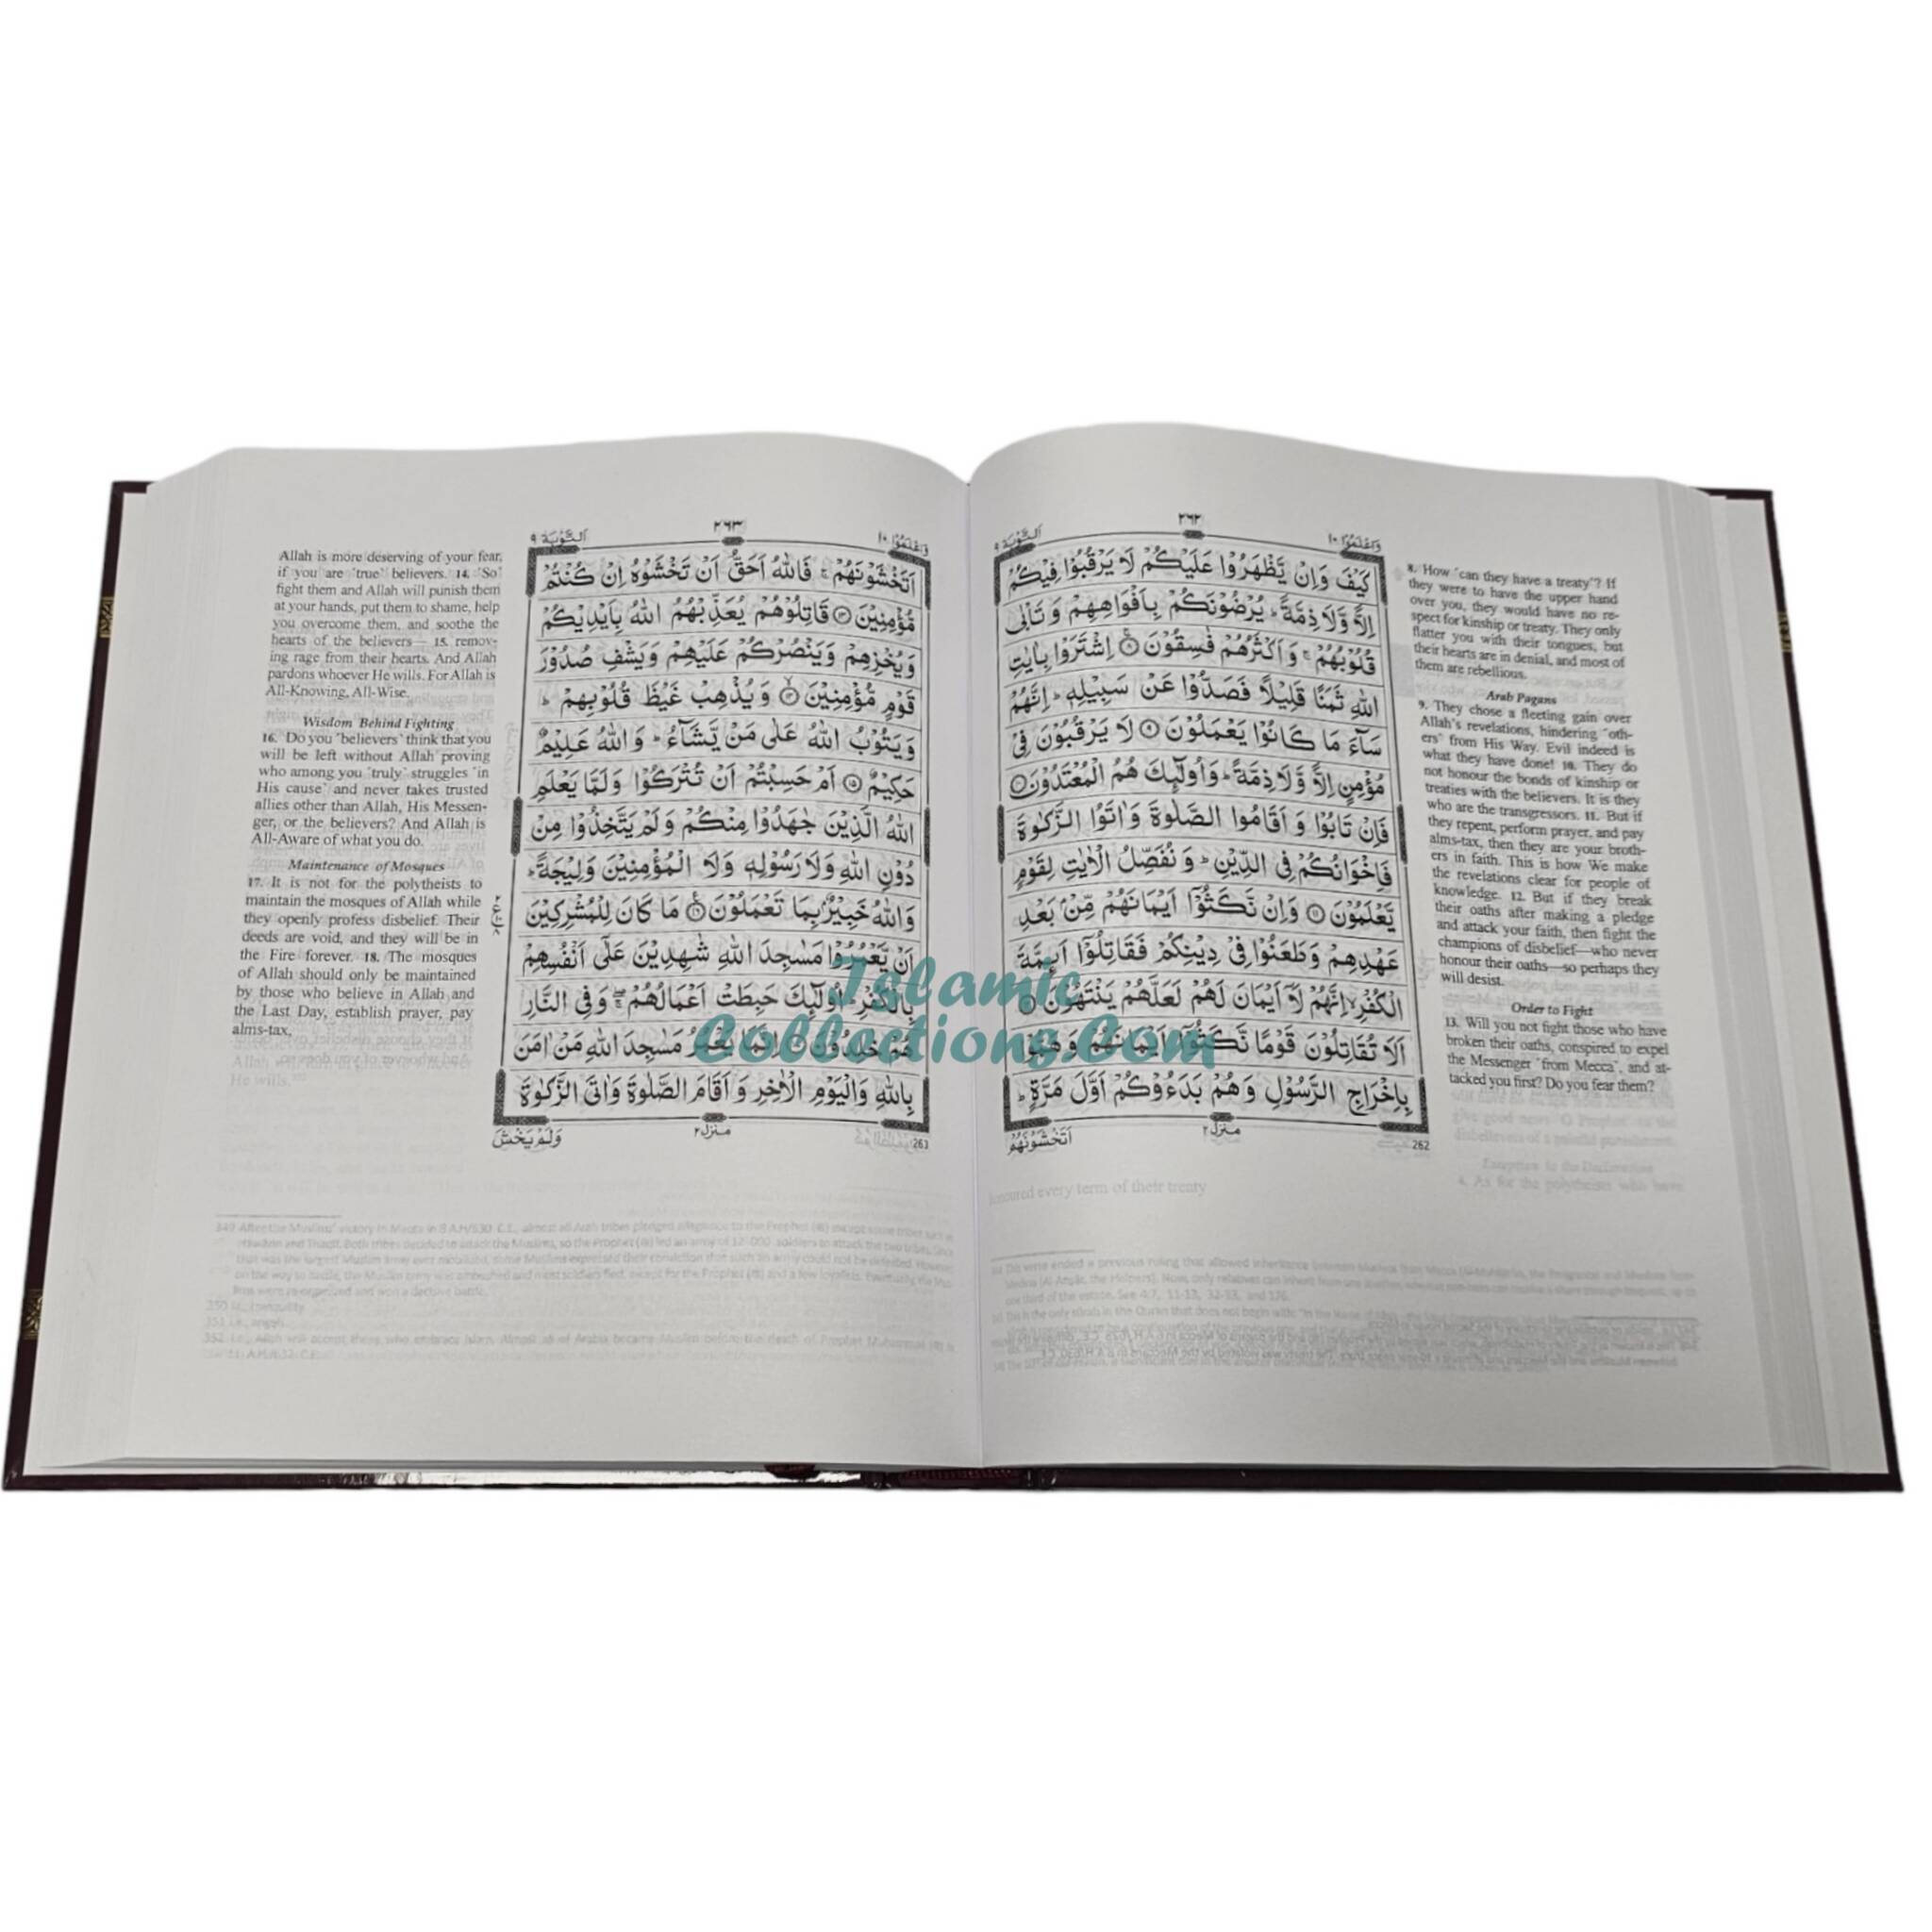 وَاعْلَمُوْٓا ١٠
٢٦٢
اَلتَّوْبَة ٩
كَيْفَ وَاِنْ يَّظْهَرُوْا عَلَيْكُمْ لَا يَرْقُبُوْا فِيْكُمْ
اِلًّا وَّلَا ذِمَّةً ؕ يُرْضُوْنَكُمْ بِاَفْوَاهِهِمْ وَ تَاْبٰى
قُلُوْبُهُمْ ۚ وَ اَكْثَرُهُمْ فٰسِقُوْنَ ۝٨ اِشْتَرَوْا بِاٰيٰتِ
اللّٰهِ ثَمَنًا قَلِيْلًا فَصَدُّوْا عَنْ سَبِيْلِهٖ ؕ اِنَّهُمْ
سَآءَ مَا كَانُوْا يَعْمَلُوْنَ ۝٩ لَا يَرْقُبُوْنَ فِيْ
مُؤْمِنٍ اِلًّا وَّ لَا ذِمَّةً ؕ وَ اُولٰٓئِكَ هُمُ الْمُعْتَدُوْنَ ۝١٠
فَاِنْ تَابُوْا وَ اَقَامُوا الصَّلٰوةَ وَ اٰتَوُا الزَّكٰوةَ
فَاِخْوَانُكُمْ فِي الدِّيْنِ ؕ وَ نُفَصِّلُ الْاٰيٰتِ لِقَوْمٍ
يَّعْلَمُوْنَ ۝١١ وَاِنْ نَّكَثُوْٓا اَيْمَانَهُمْ مِّنْۢ بَعْدِ
عَهْدِهِمْ وَطَعَنُوْا فِيْ دِيْنِكُمْ فَقَاتِلُوْٓا اَىِٕمَّةَ
الْكُفْرِ ۙ اِنَّهُمْ لَآ اَيْمَانَ لَهُمْ لَعَلَّهُمْ يَنْتَهُوْنَ ۝١٢
اَلَا تُقَاتِلُوْنَ قَوْمًا نَّكَثُوْٓا اَيْمَانَهُمْ وَهَمُّوْا
بِاِخْرَاجِ الرَّسُوْلِ وَهُمْ بَدَءُوْكُمْ اَوَّلَ مَرَّةٍ ؕ
منزل ٢
اَتَخْشَوْنَهُمْ
262
8. How ˹can they have a treaty˺? If
they were to have the upper hand
over you, they would have no re-
spect for kinship or treaty. They only
flatter you with their tongues, but
their hearts are in denial, and most of
them are rebellious.
Arab Pagans
9. They chose a fleeting gain over
Allah's revelations, hindering ˹oth-
ers˺ from His Way. Evil indeed is
what they have done! 10. They do
not honour the bonds of kinship or
treaties with the believers. It is they
who are the transgressors. 11. But if
they repent, perform prayer, and pay
alms-tax, then they are your broth-
ers in faith. This is how We make
the revelations clear for people of
knowledge. 12. But if they break
their oaths after making a pledge
and attack your faith, then fight the
champions of disbelief—who never
honour their oaths—so perhaps they
will desist.
Order to Fight
13. Will you not fight those who have
broken their oaths, conspired to expel
the Messenger ˹from Mecca˺, and at-
tacked you first? Do you fear them?
وَاعْلَمُوْٓا ١٠
٢٦٣
اَلتَّوْبَة ٩
اَتَخْشَوْنَهُمْ ۚ فَاللّٰهُ اَحَقُّ اَنْ تَخْشَوْهُ اِنْ كُنْتُمْ
مُّؤْمِنِيْنَ ۝١٣ قَاتِلُوْهُمْ يُعَذِّبْهُمُ اللّٰهُ بِاَيْدِيْكُمْ
وَيُخْزِهِمْ وَيَنْصُرْكُمْ عَلَيْهِمْ وَيَشْفِ صُدُوْرَ
قَوْمٍ مُّؤْمِنِيْنَ ۝١٤ وَيُذْهِبْ غَيْظَ قُلُوْبِهِمْ ؕ
وَيَتُوْبُ اللّٰهُ عَلٰى مَنْ يَّشَآءُ ؕ وَاللّٰهُ عَلِيْمٌ
حَكِيْمٌ ۝١٥ اَمْ حَسِبْتُمْ اَنْ تُتْرَكُوْا وَلَمَّا يَعْلَمِ
اللّٰهُ الَّذِيْنَ جٰهَدُوْا مِنْكُمْ وَلَمْ يَتَّخِذُوْا مِنْ
دُوْنِ اللّٰهِ وَلَا رَسُوْلِهٖ وَلَا الْمُؤْمِنِيْنَ وَلِيْجَةً ؕ
وَاللّٰهُ خَبِيْرٌۢ بِمَا تَعْمَلُوْنَ ۝١٦ مَا كَانَ لِلْمُشْرِكِيْنَ
اَنْ يَّعْمُرُوْا مَسٰجِدَ اللّٰهِ شٰهِدِيْنَ عَلٰٓى اَنْفُسِهِمْ
بِالْكُفْرِ ؕ اُولٰٓئِكَ حَبِطَتْ اَعْمَالُهُمْ ۖۚ وَفِي النَّارِ
هُمْ خٰلِدُوْنَ ۝١٧ اِنَّمَا يَعْمُرُ مَسٰجِدَ اللّٰهِ مَنْ اٰمَنَ
بِاللّٰهِ وَالْيَوْمِ الْاٰخِرِ وَ اَقَامَ الصَّلٰوةَ وَاٰتَى الزَّكٰوةَ
منزل ٢
وَلَمْ يَخْشَ
263
Allah is more deserving of your fear,
if you are ˹true˺ believers. 14. ˹So˺
fight them and Allah will punish them
at your hands, put them to shame, help
you overcome them, and soothe the
hearts of the believers— 15. remov-
ing rage from their hearts. And Allah
pardons whoever He wills. For Allah is
All-Knowing, All-Wise.
Wisdom Behind Fighting
16. Do you ˹believers˺ think that you
will be left without Allah proving
who among you ˹truly˺ struggles ˹in
His cause˺ and never takes trusted
allies other than Allah, His Messen-
ger, or the believers? And Allah is
All-Aware of what you do.
Maintenance of Mosques
17. It is not for the polytheists to
maintain the mosques of Allah while
they openly profess disbelief. Their
deeds are void, and they will be in
the Fire forever. 18. The mosques
of Allah should only be maintained
by those who believe in Allah and
the Last Day, establish prayer, pay
alms-tax,
Islamic
Collections.Com